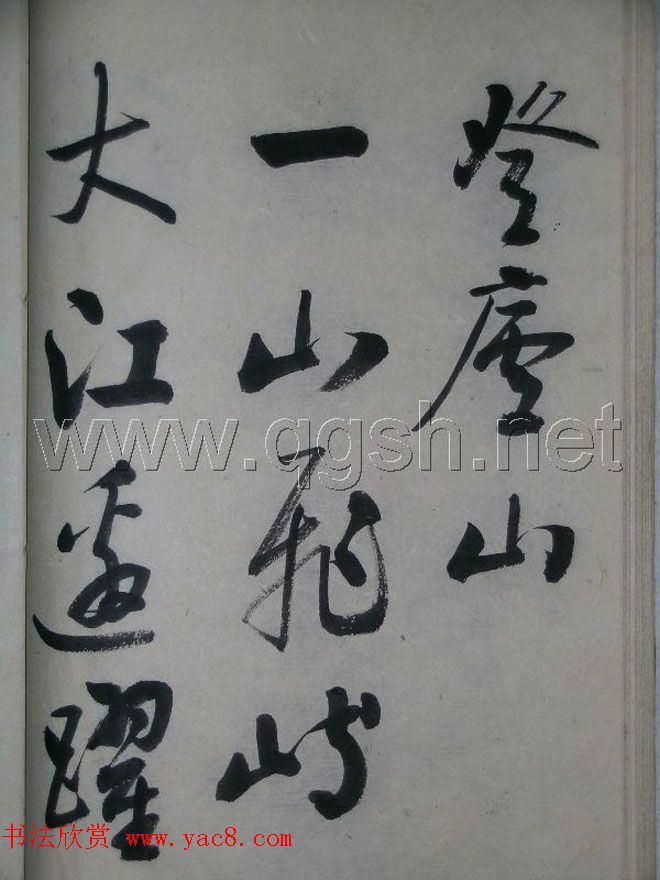 登廬山
一山飛峙
大江邊躍
www.qgsh.net
书法欣赏 www.yac8.com